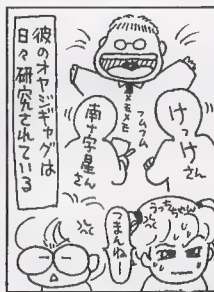 彼のオヤジギャグは
日々研究されている
メモメモ
フムフム
けっけさん
南十字星さん
うっちぃちゃん
つまんねー